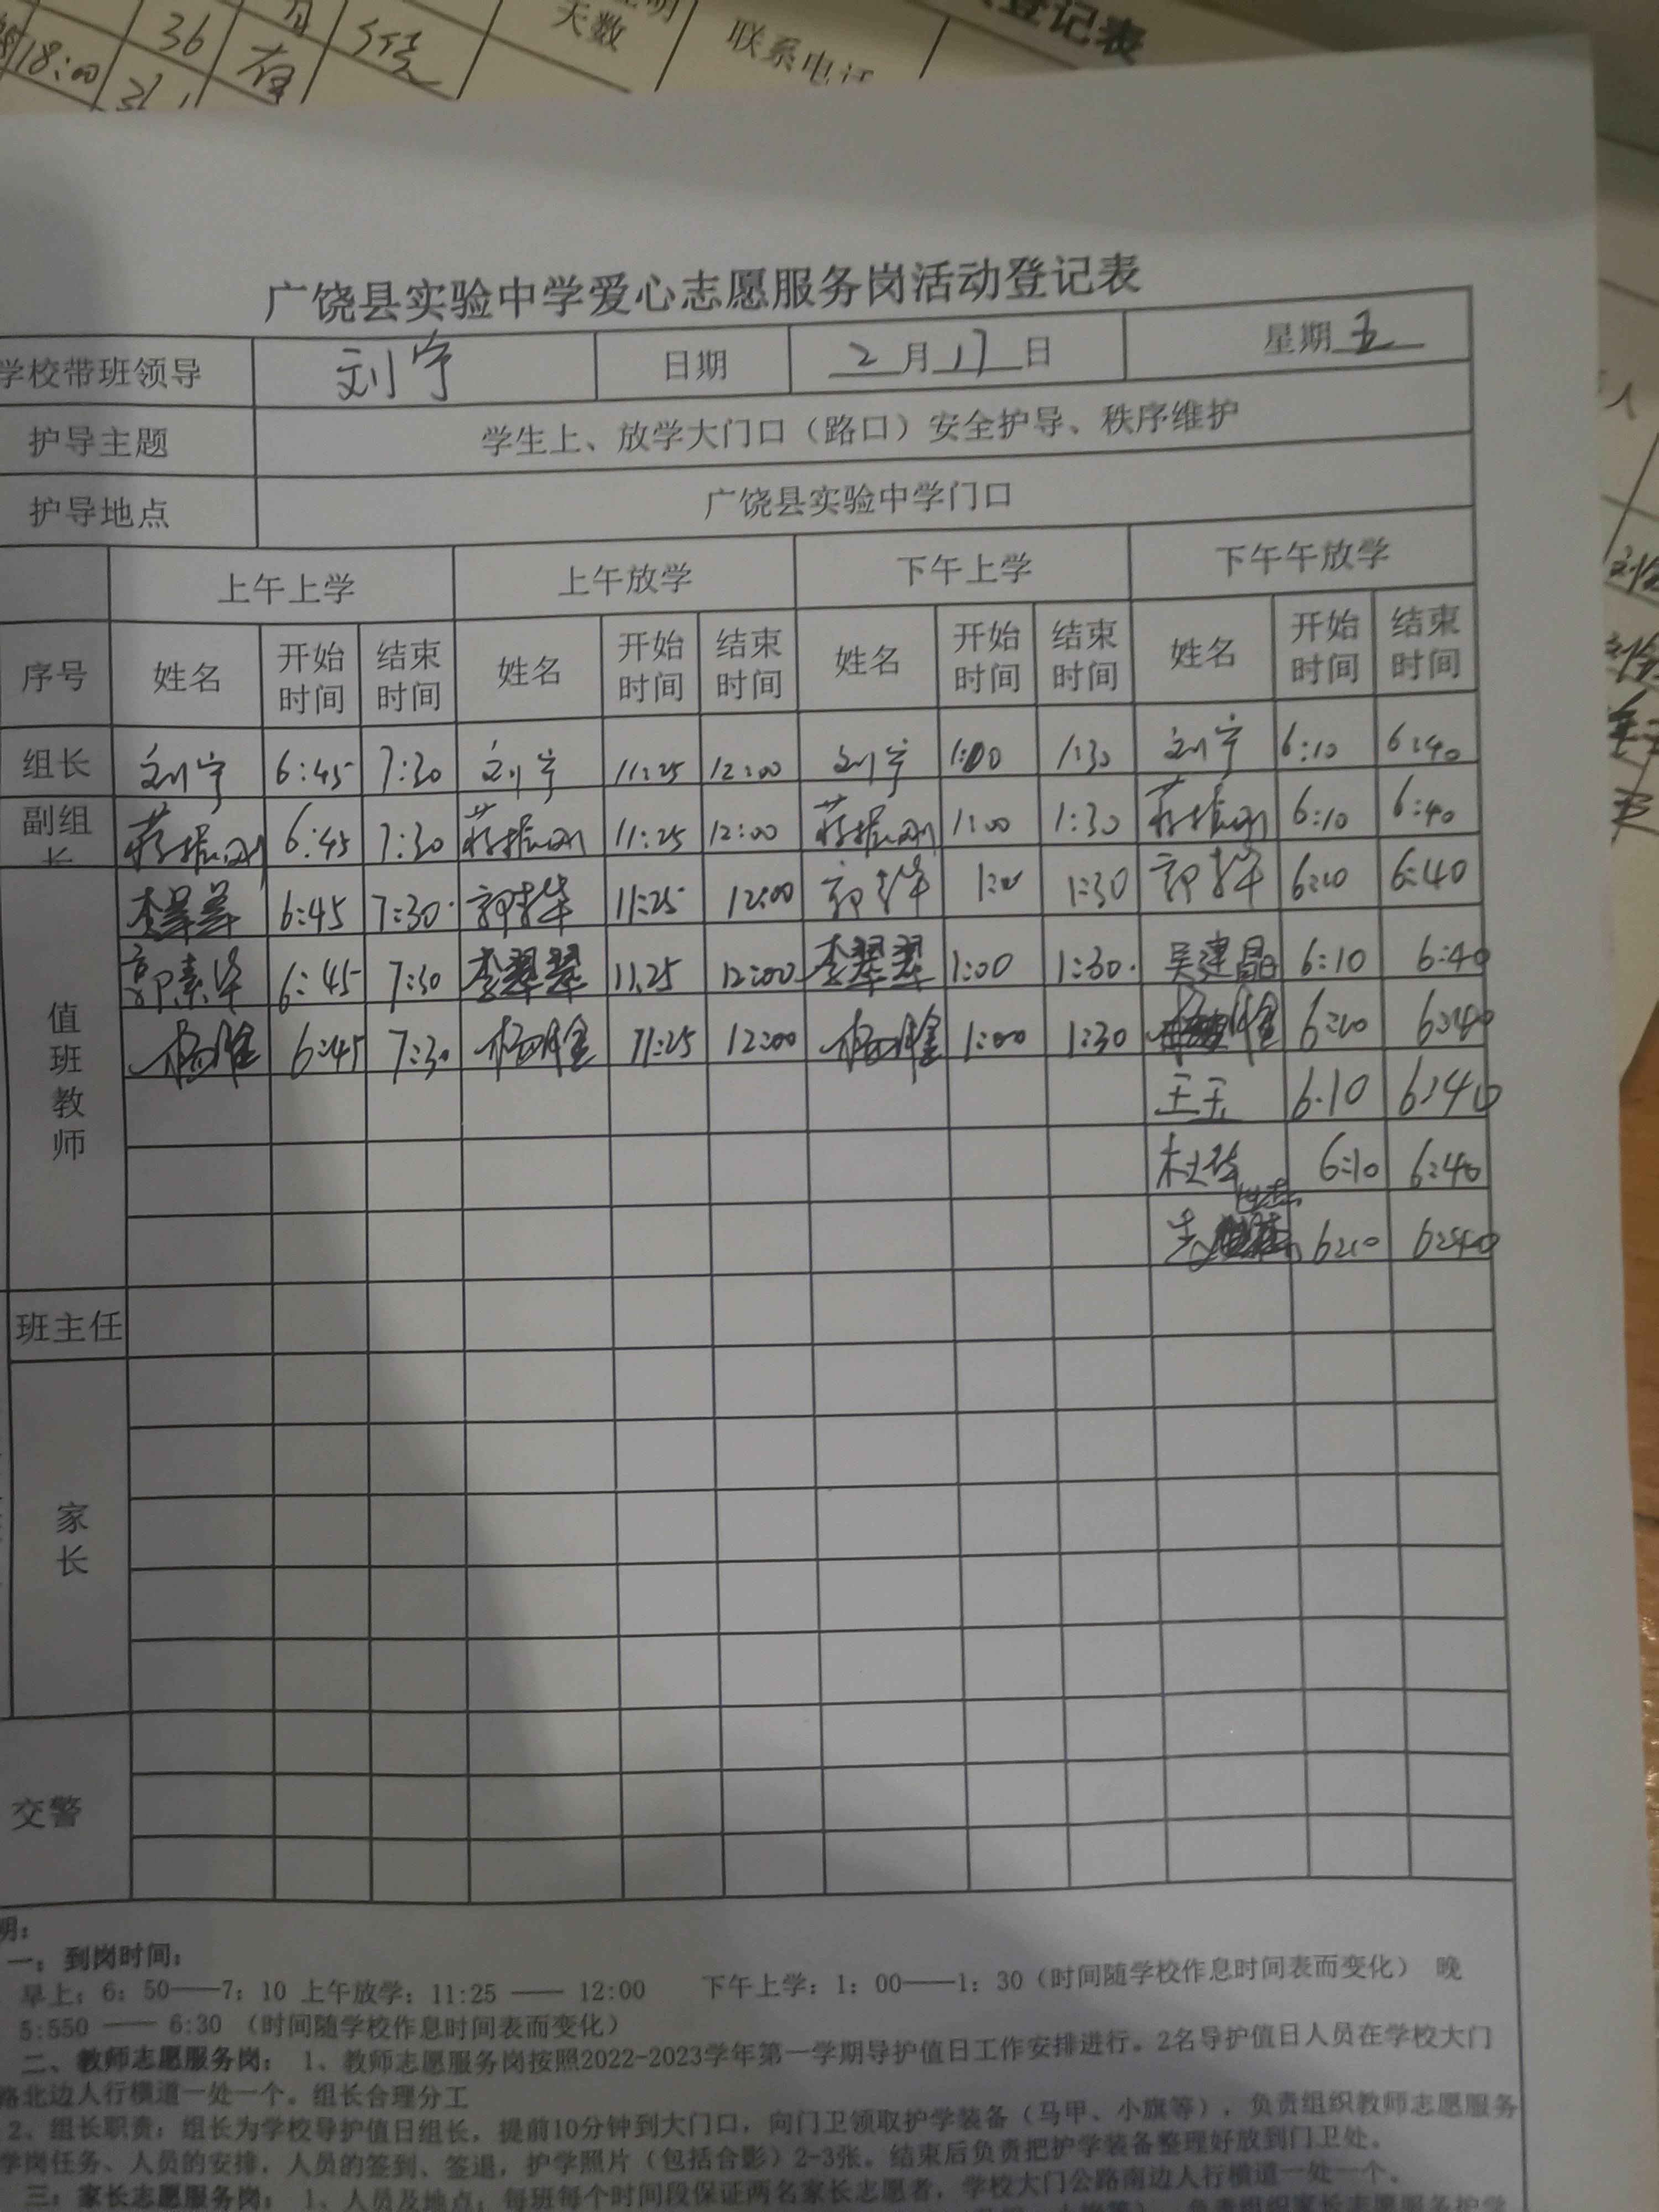 18:00
36
天数
联系电话
登记表
广饶县实验中学爱心志愿服务岗活动登记表
学校带班领导 刘宁 日期 2月17日 星期五
护导主题 学生上、放学大门口（路口）安全护导、秩序维护
护导地点 广饶县实验中学门口
上午上学 上午放学 下午上学 下午午放学
序号 姓名 开始时间 结束时间 姓名 开始时间 结束时间 姓名 开始时间 结束时间 姓名 开始时间 结束时间
组长 刘宁 6:45 7:30 刘宁 11:25 12:00 刘宁 1:00 1:30 刘宁 6:10 6:40
副组长 蒋振刚 6:45 7:30 蒋振刚 11:25 12:00 蒋振刚 1:00 1:30 蒋振刚 6:10 6:40
值班教师
6:45 7:30 11:25 12:00 1:30 6:10 6:40
6:45 7:30 李翠翠 11:25 12:00 李翠翠 1:00 1:30 吴建晶 6:10 6:40
6:45 7:30 11:25 12:00 1:00 1:30 6:10 6:40
王玉 6:10 6:40
6:10 6:40
6:10 6:40
班主任
家长
交警
明：
一：到岗时间：
早上：6：50——7：10 上午放学：11:25 —— 12:00 下午上学：1：00——1：30（时间随学校作息时间表而变化） 晚
5:550 —— 6:30 （时间随学校作息时间表而变化）
二、教师志愿服务岗： 1、教师志愿服务岗按照2022-2023学年第一学期导护值日工作安排进行。2名导护值日人员在学校大门
路北边人行横道一处一个。组长合理分工
2、组长职责：组长为学校导护值日组长，提前10分钟到大门口，向门卫领取护学装备（马甲、小旗等），负责组织教师志愿服务
学岗任务、人员的安排，人员的签到、签退，护学照片（包括合影）2-3张。结束后负责把护学装备整理好放到门卫处。
三：家长志愿服务岗： 1、人员及地点：每班每个时间段保证两名家长志愿者，学校大门公路南边人行横道一处一个。